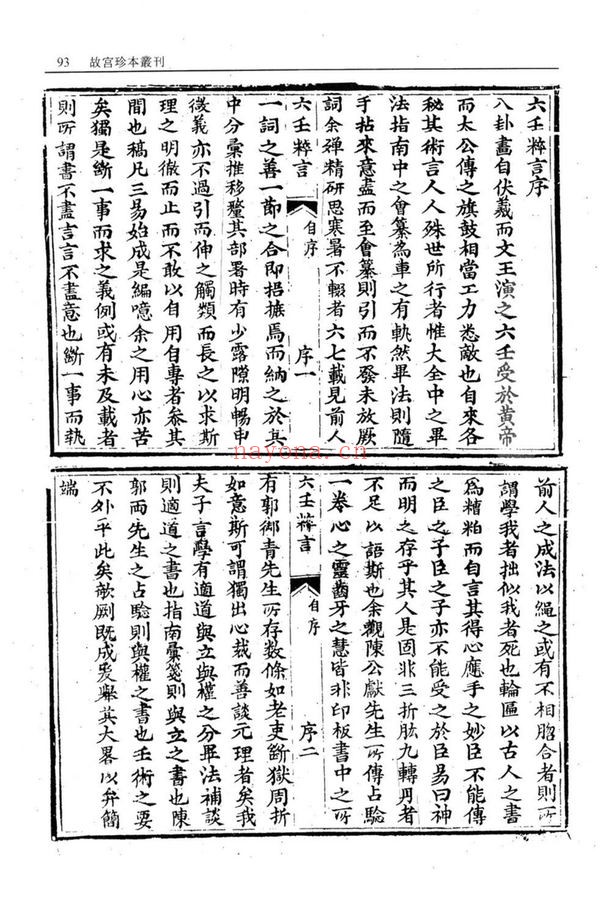 93 故宮珍本叢刊
六壬粹言序
八卦畫自伏羲而文王演之六壬受於黃帝
而太公傳之旗鼓相當工力悉敵也自來各
秘其術言人人殊世所行者惟大全中之畢
法指南中之會纂為車之有軌然畢法則隨
手拈來意盡而至會纂則引而不發未放厥
詞余殫精研思寒暑不輟者六七載見前人
六壬粹言
自序
序一
一詞之善一節之合即捃摭焉而納之於其
中分彙推移釐其部署時有少露隙明暢申
微義亦不過引而伸之觸類而長之以求斯
理之明徹而止而不敢以自用自專者叅其
間也稿凡三易始成是編噫余之用心亦苦
矣獨是斷一事而求之義例或有未及載者
則所謂書不盡言言不盡意也斷一事而執
前人之成法以繩之或有不相脗合者則所
謂學我者拙似我者死也輪匾以古人之書
為糟粕而自言其得心應手之妙臣不能傳
之臣之子臣之子亦不能受之於臣易曰神
而明之存乎其人是固非三折肱九轉丹者
不足以語斯也余觀陳公獻先生所傳占驗
一卷心之靈齒牙之慧皆非印板書中之所
六壬粹言
自序
序二
有郭御青先生所存数條如老吏斷獄周折
如意斯可謂獨出心裁而善談元理者矣我
夫子言學有適道與立與權之分畢法補談
則適道之書也指南彙箋則與立之書也陳
郭而先生之占驗則與權之書也壬術之要
不外乎此矣欹劂既成爰舉其大畧以弁簡
端
nayona.cn